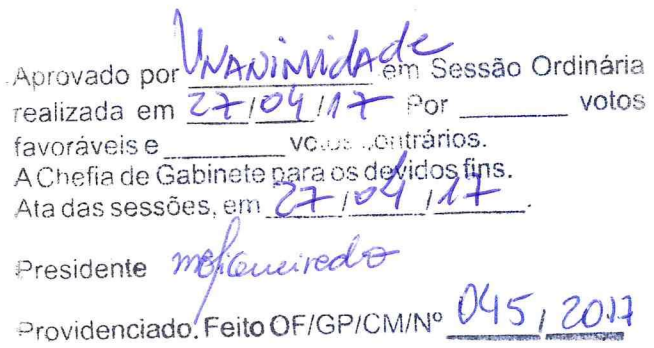 Aprovado por UNANIMIdAde em Sessão Ordinária
realizada em 27/04/17 Por ______ votos
favoráveis e ______ votos contrários.
A Chefia de Gabinete para os devidos fins.
Ata das sessões, em 27/04/17.
Presidente
Providenciado. Feito OF/GP/CM/Nº 045, 2017